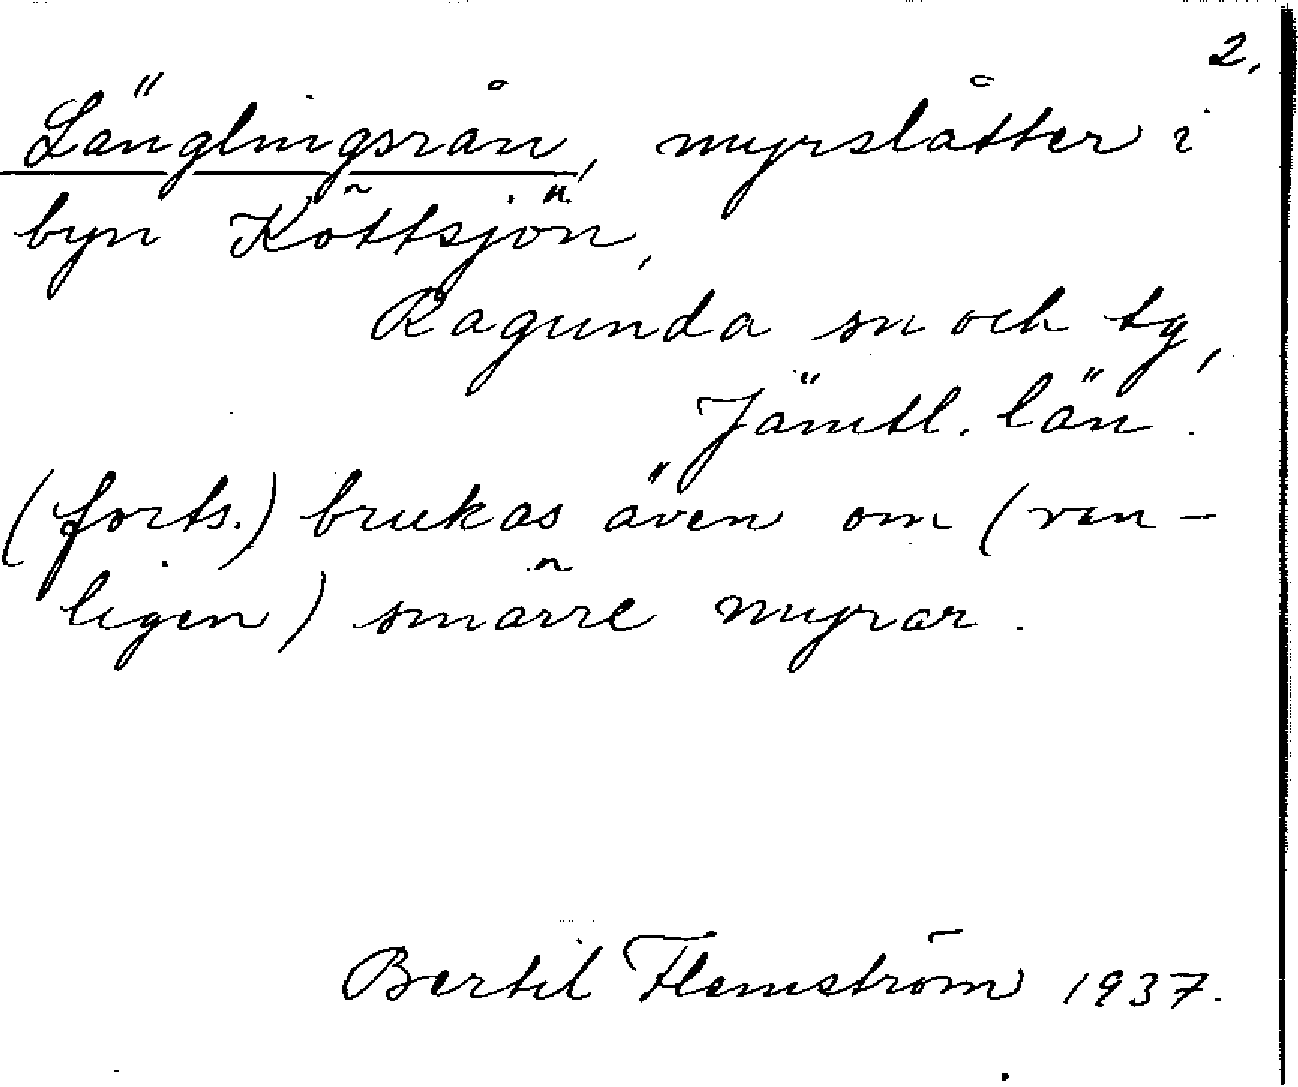 2.
Länglingsrån, myrslåtter i
byn Köttsjön,
Ragunda sn och tg,
Jämtl. län.
(forts.) brukas även om (van-
ligen) smärre myrar.
Bertil Flemström 1937.